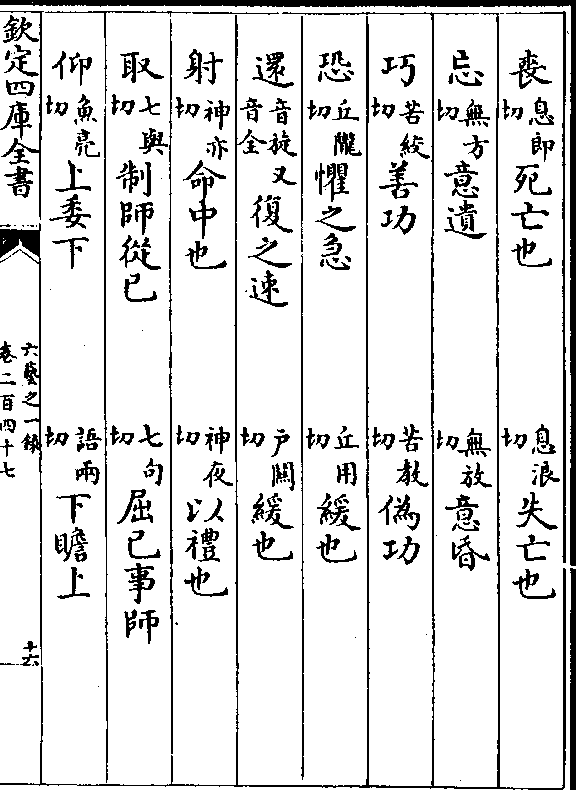 喪息郎切死亡也 息浪切失亡也
忘無方切意遺 無放切意昏
巧苦絞切善功 苦教切偽功
恐丘隴切懼之急 丘用切緩也
還音旋又音全復之速 戶關切緩也
射神亦切命中也 神夜切以禮也
取七與切制師從已 七句切屈已事師
仰魚亮切上委下 語兩切下瞻上
欽定四庫全書
六藝之一錄
卷二百四十七
十六